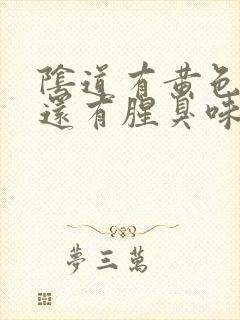 陰道有黃色
還有腥臭味
夢三萬